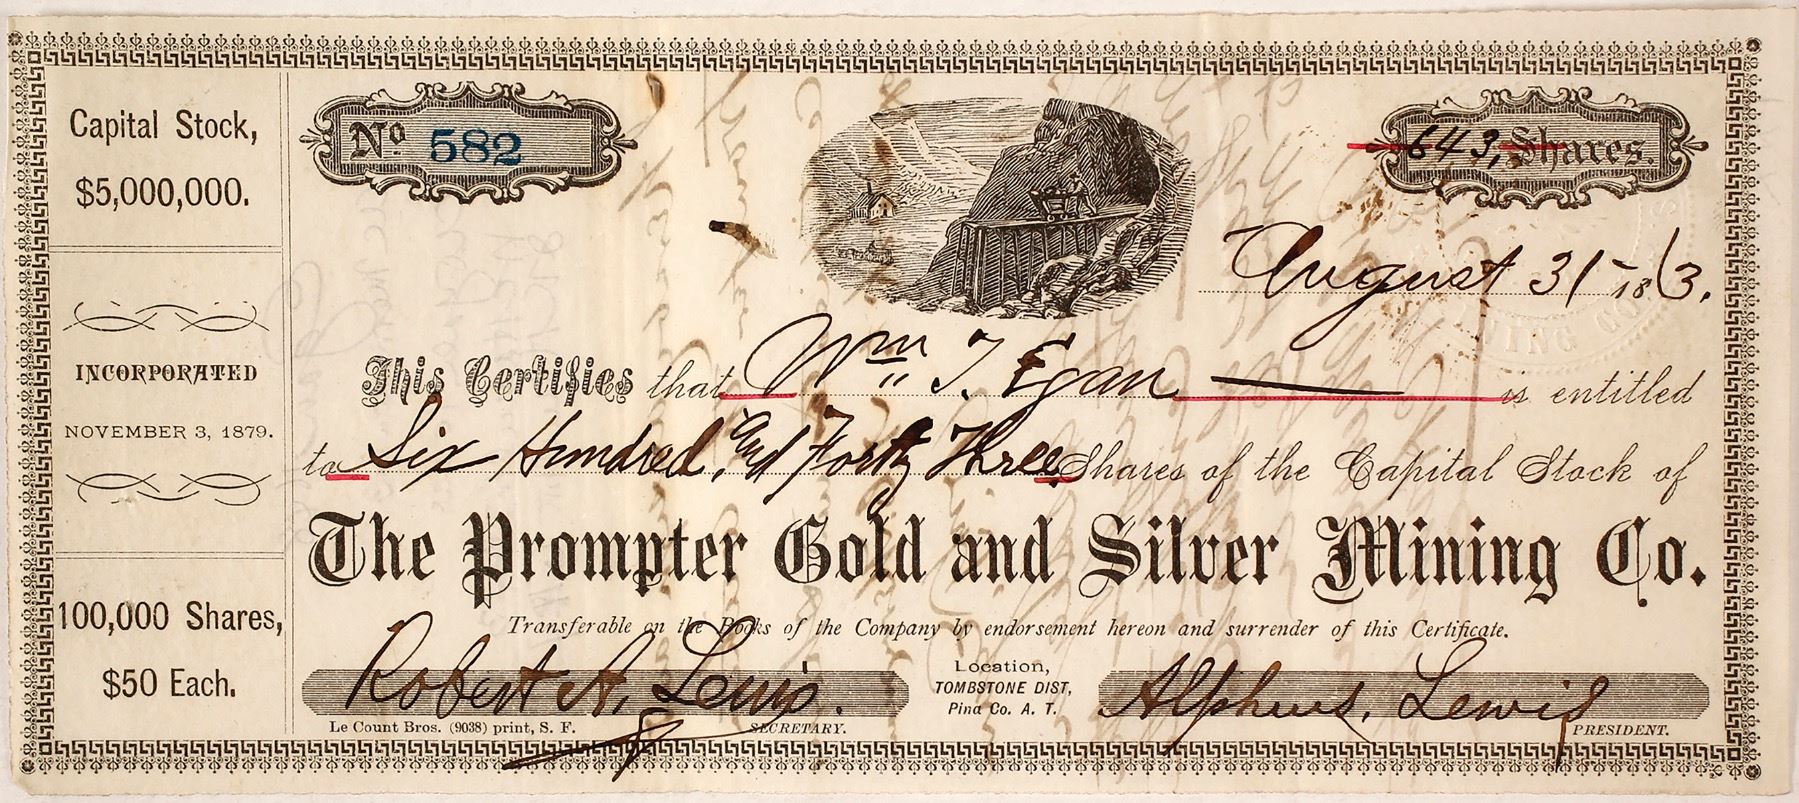 Capital Stock,
$5,000,000.
INCORPORATED
NOVEMBER 3, 1879.
100,000 Shares,
$50 Each.
No 582
643, Shares.
August 31 - 1883.
This Certifies that Wm T. Egan is entitled
to Six Hundred, and Forty Three Shares of the Capital Stock of
The Prompter Gold and Silver Mining Co.
Transferable on the Books of the Company by endorsement hereon and surrender of this Certificate.
Robert A. Lewis.
SECRETARY.
Le Count Bros. (9038) print, S. F.
Location,
TOMBSTONE DIST,
Pina Co. A. T.
Alpheus. Lewis
PRESIDENT.
MINING CO